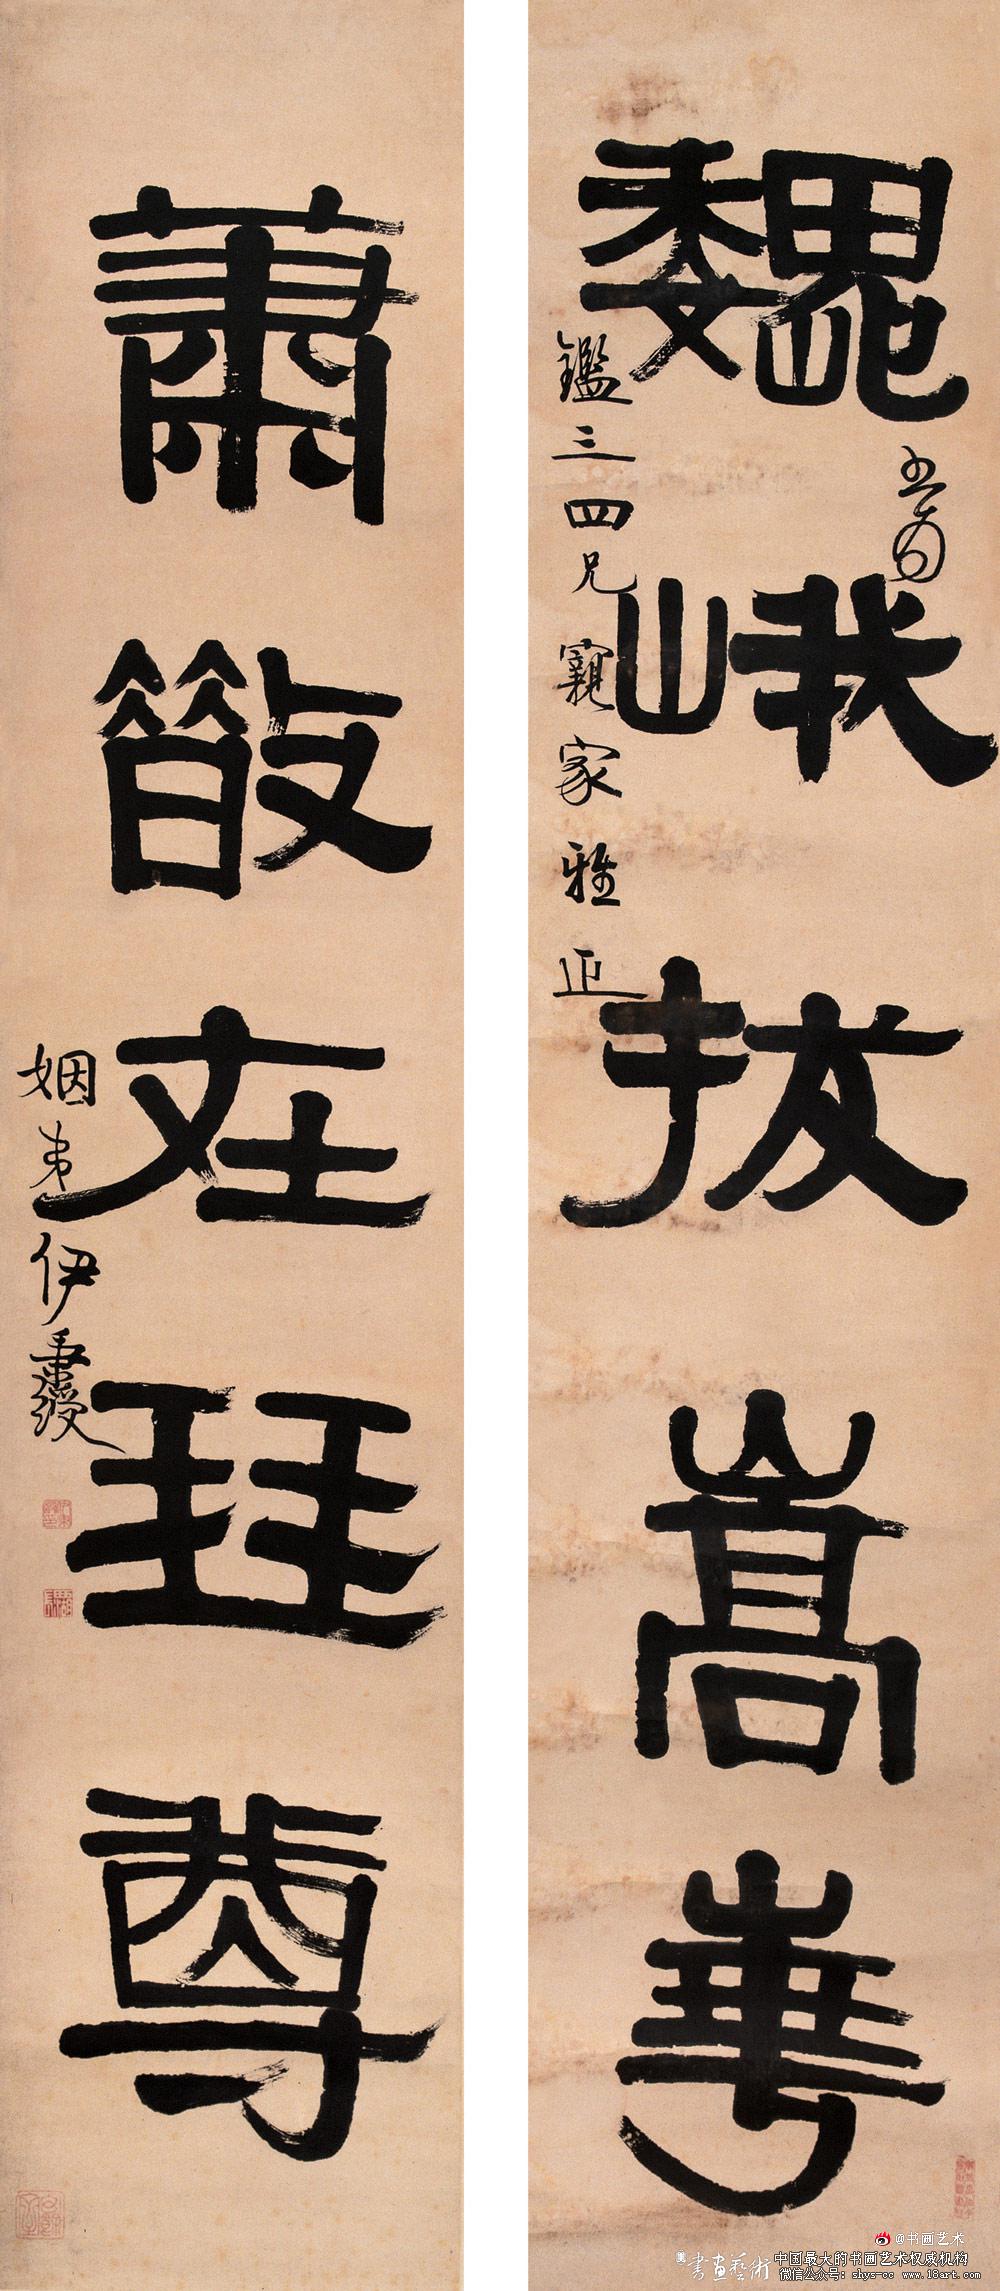 巍峨拔嵩華
書為
鑑三四兄親家雅正
蕭散在琴尊
姻弟伊秉綬
@书画艺术
書画藝術
中国最大的书画艺术权威机构
微信公众号: shys-cc www.18art.com